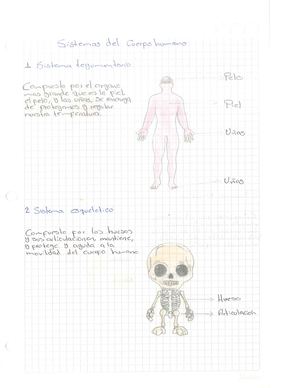 Sistemas del Cuerpo humano
1 Sistema tegumentario
Compuesto por el organo
mas grande que es la piel
el pelo, y las uñas. Se encarga
de protegernos y regular
nuestra temperatura.
Pelo
Piel
Uñas
Uñas
2 Sistema esqueletico
Compuesto por los huesos
y sus articulaciones, mantiene,
y protege y ayuda a la
movilidad del cuerpo humano
Hueso
Articulacion